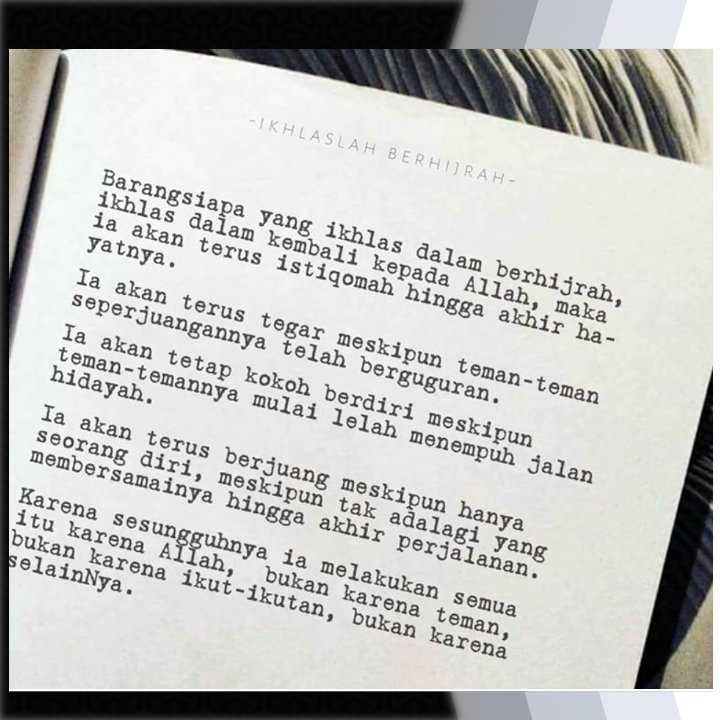 -IKHLASLAH BERHIJRAH-
Barangsiapa yang ikhlas dalam berhijrah,
ikhlas dalam kembali kepada Allah, maka
ia akan terus istiqomah hingga akhir ha-
yatnya.
Ia akan terus tegar meskipun teman-teman
seperjuangannya telah berguguran.
Ia akan tetap kokoh berdiri meskipun
teman-temannya mulai lelah menempuh jalan
hidayah.
Ia akan terus berjuang meskipun hanya
seorang diri, meskipun tak adalagi yang
membersamainya hingga akhir perjalanan.
Karena sesungguhnya ia melakukan semua
itu karena Allah, bukan karena teman,
bukan karena ikut-ikutan, bukan karena
selainNya.